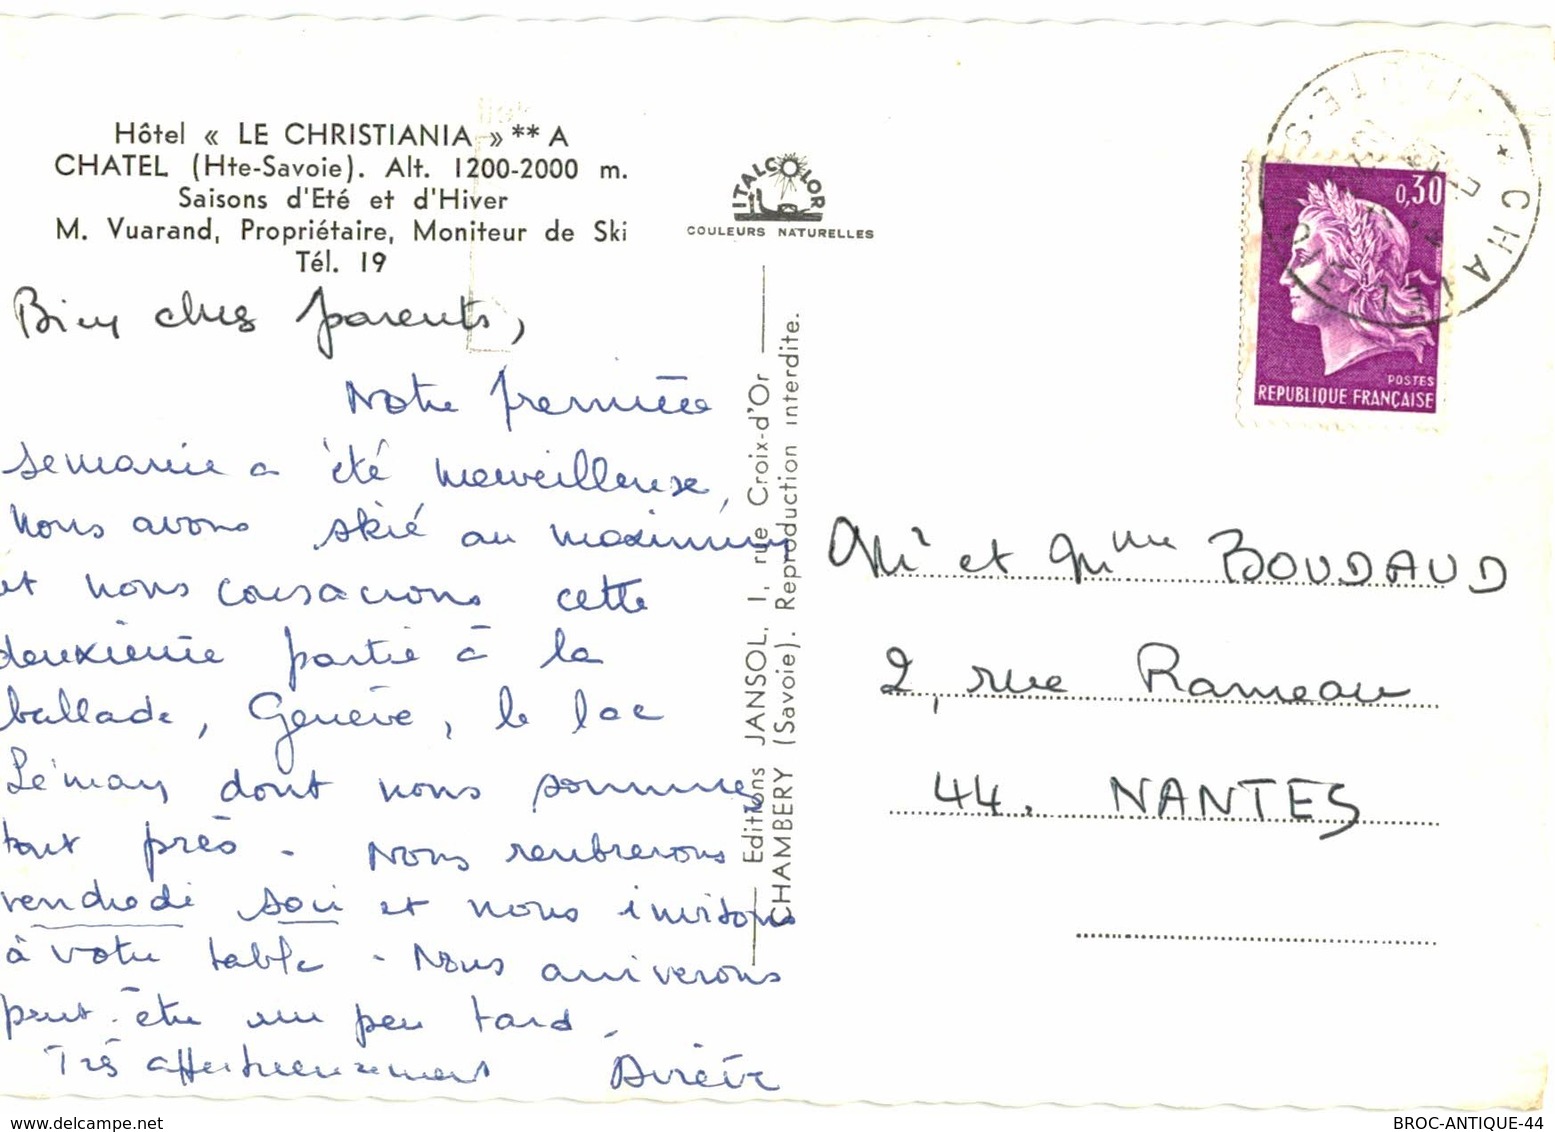 Hôtel « LE CHRISTIANIA » ** A
CHATEL (Hte-Savoie). Alt. 1200-2000 m.
Saisons d'Eté et d'Hiver
M. Vuarand, Propriétaire, Moniteur de Ski
Tél. 19
Bien chers parents,
Notre première
semaine a été merveilleuse,
nous avons skié au maximum
et nous consacrons cette
deuxième partie à la
ballade, Genève, le lac
Léman dont nous sommes
tout près - Nous rentrerons
vendredi soir et nous invitons
à votre table - Nous arriverons
peut-être un peu tard,
Très affectueusement
ITALCOLOR
COULEURS NATURELLES
Editions JANSOL, 1, rue Croix-d'Or
CHAMBERY (Savoie). Reproduction interdite.
0,30
POSTES
REPUBLIQUE FRANÇAISE
* CHATEL *
Mr et Mme BOUDAUD
2, rue Rameau
44. NANTES
BROC-ANTIQUE-44